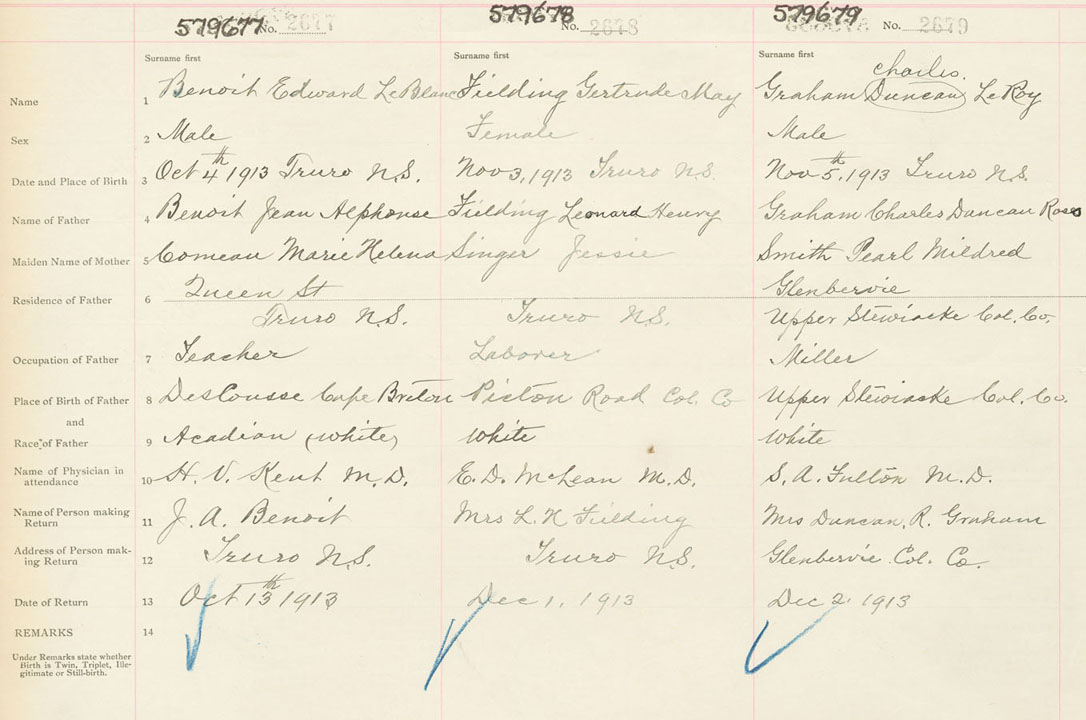 579677 No. 2677 579678 No. 2678 579679 No. 2679
Surname first Surname first Surname first
charles.
Name 1 Benoit Edward LeBlanc Fielding Gertrude May Graham Duncan LeRoy
Sex 2 Male Female Male
Date and Place of Birth 3 Oct 4th 1913 Truro N.S. Nov 3, 1913 Truro N.S. Nov 5th, 1913 Truro N.S.
Name of Father 4 Benoit Jean Alphonse Fielding Leonard Henry Graham Charles Duncan Ross
Maiden Name of Mother 5 Comeau Marie Helena Singer Jessie Smith Pearl Mildred
Queen St Glenbervie
Residence of Father 6 Truro N.S. Truro N.S. Upper Stewiacke Col. Co.
Occupation of Father 7 Teacher Laborer Miller
Place of Birth of Father 8 DesCousse Cape Breton Picton Road Col. Co Upper Stewiacke Col. Co.
and
Race of Father 9 Acadian (white) White White
Name of Physician in
attendance 10 H. V. Kent M.D. E. D. McLean M.D. S. A. Fulton M.D.
Name of Person making
Return 11 J. A. Benoit Mrs L. H Fielding Mrs Duncan R. Graham
Address of Person mak-
ing Return 12 Truro N.S. Truro N.S. Glenbervie Col. Co.
Date of Return 13 Oct 13th 1913 Dec 1, 1913 Dec 2 1913
REMARKS 14
Under Remarks state whether
Birth is Twin, Triplet, Ille-
gitimate or Still-birth.